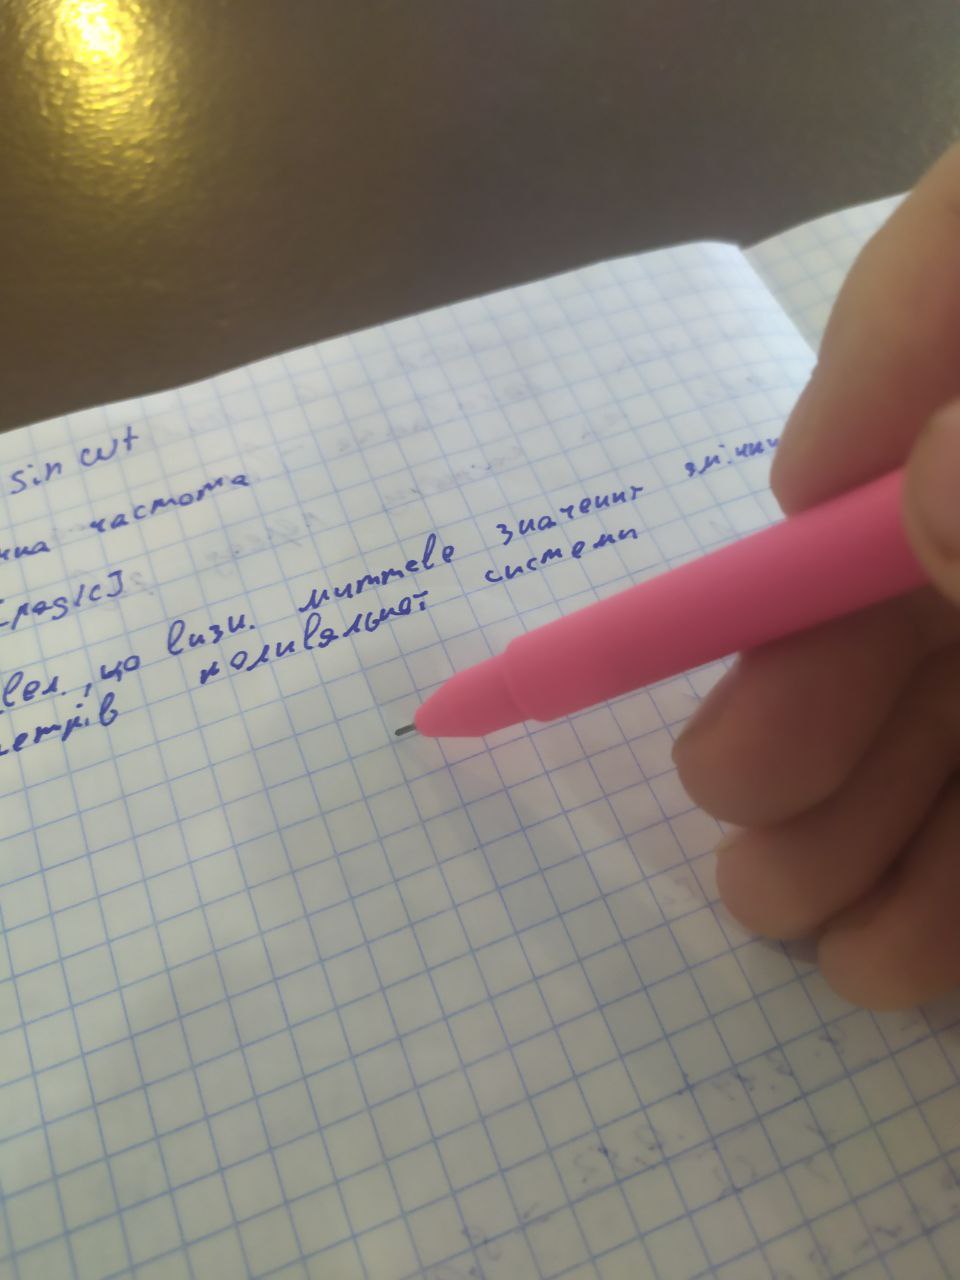 sin ωt
чна частота
[рад/с]
вел., що визн. миттєве значення змінних
метрів коливальної системи